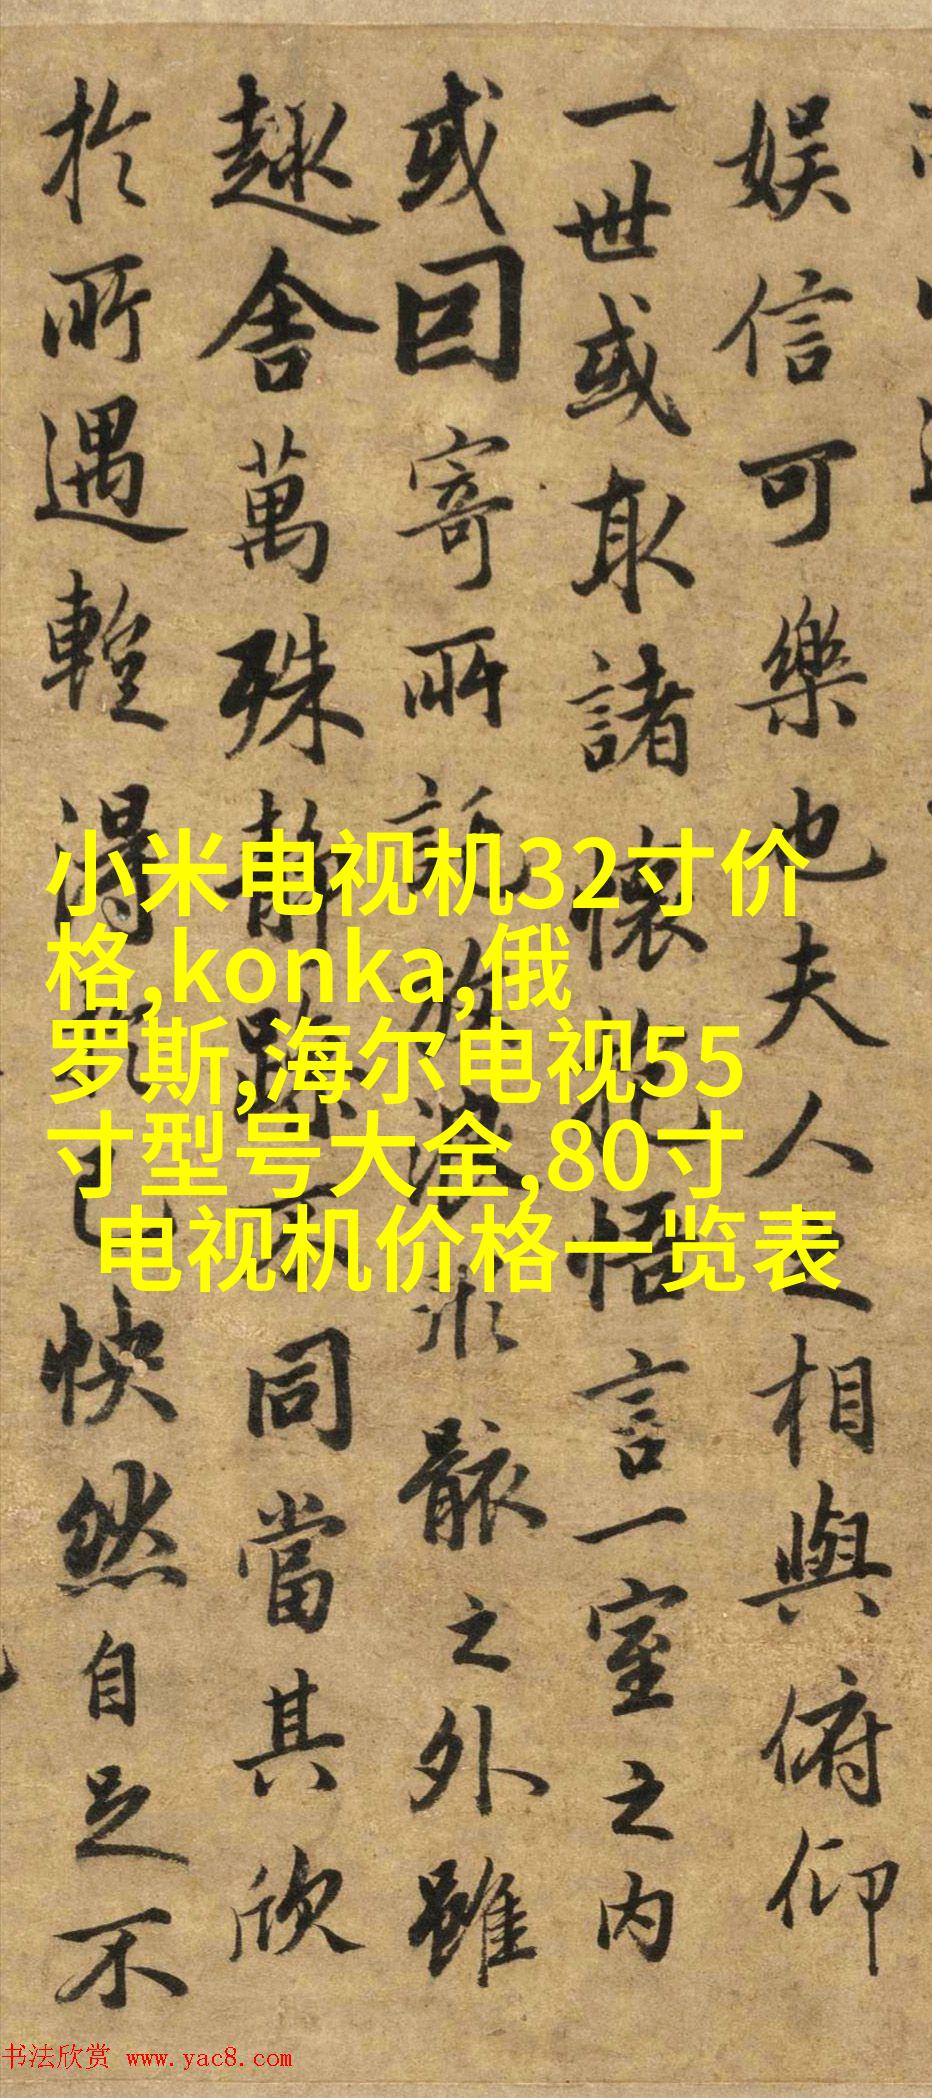 娱信可樂也夫人之相與俯仰
一世或取諸懷抱悟言一室之内
或囙寄所託放浪形骸之外雖
趣舍萬殊静躁不同當其欣
於所遇暫得於己怏然自足不
小米电视机32寸价
格,konka,俄
罗斯,海尔电视55
寸型号大全,80寸
电视机价格一览表
书法欣赏 www.yac8.com